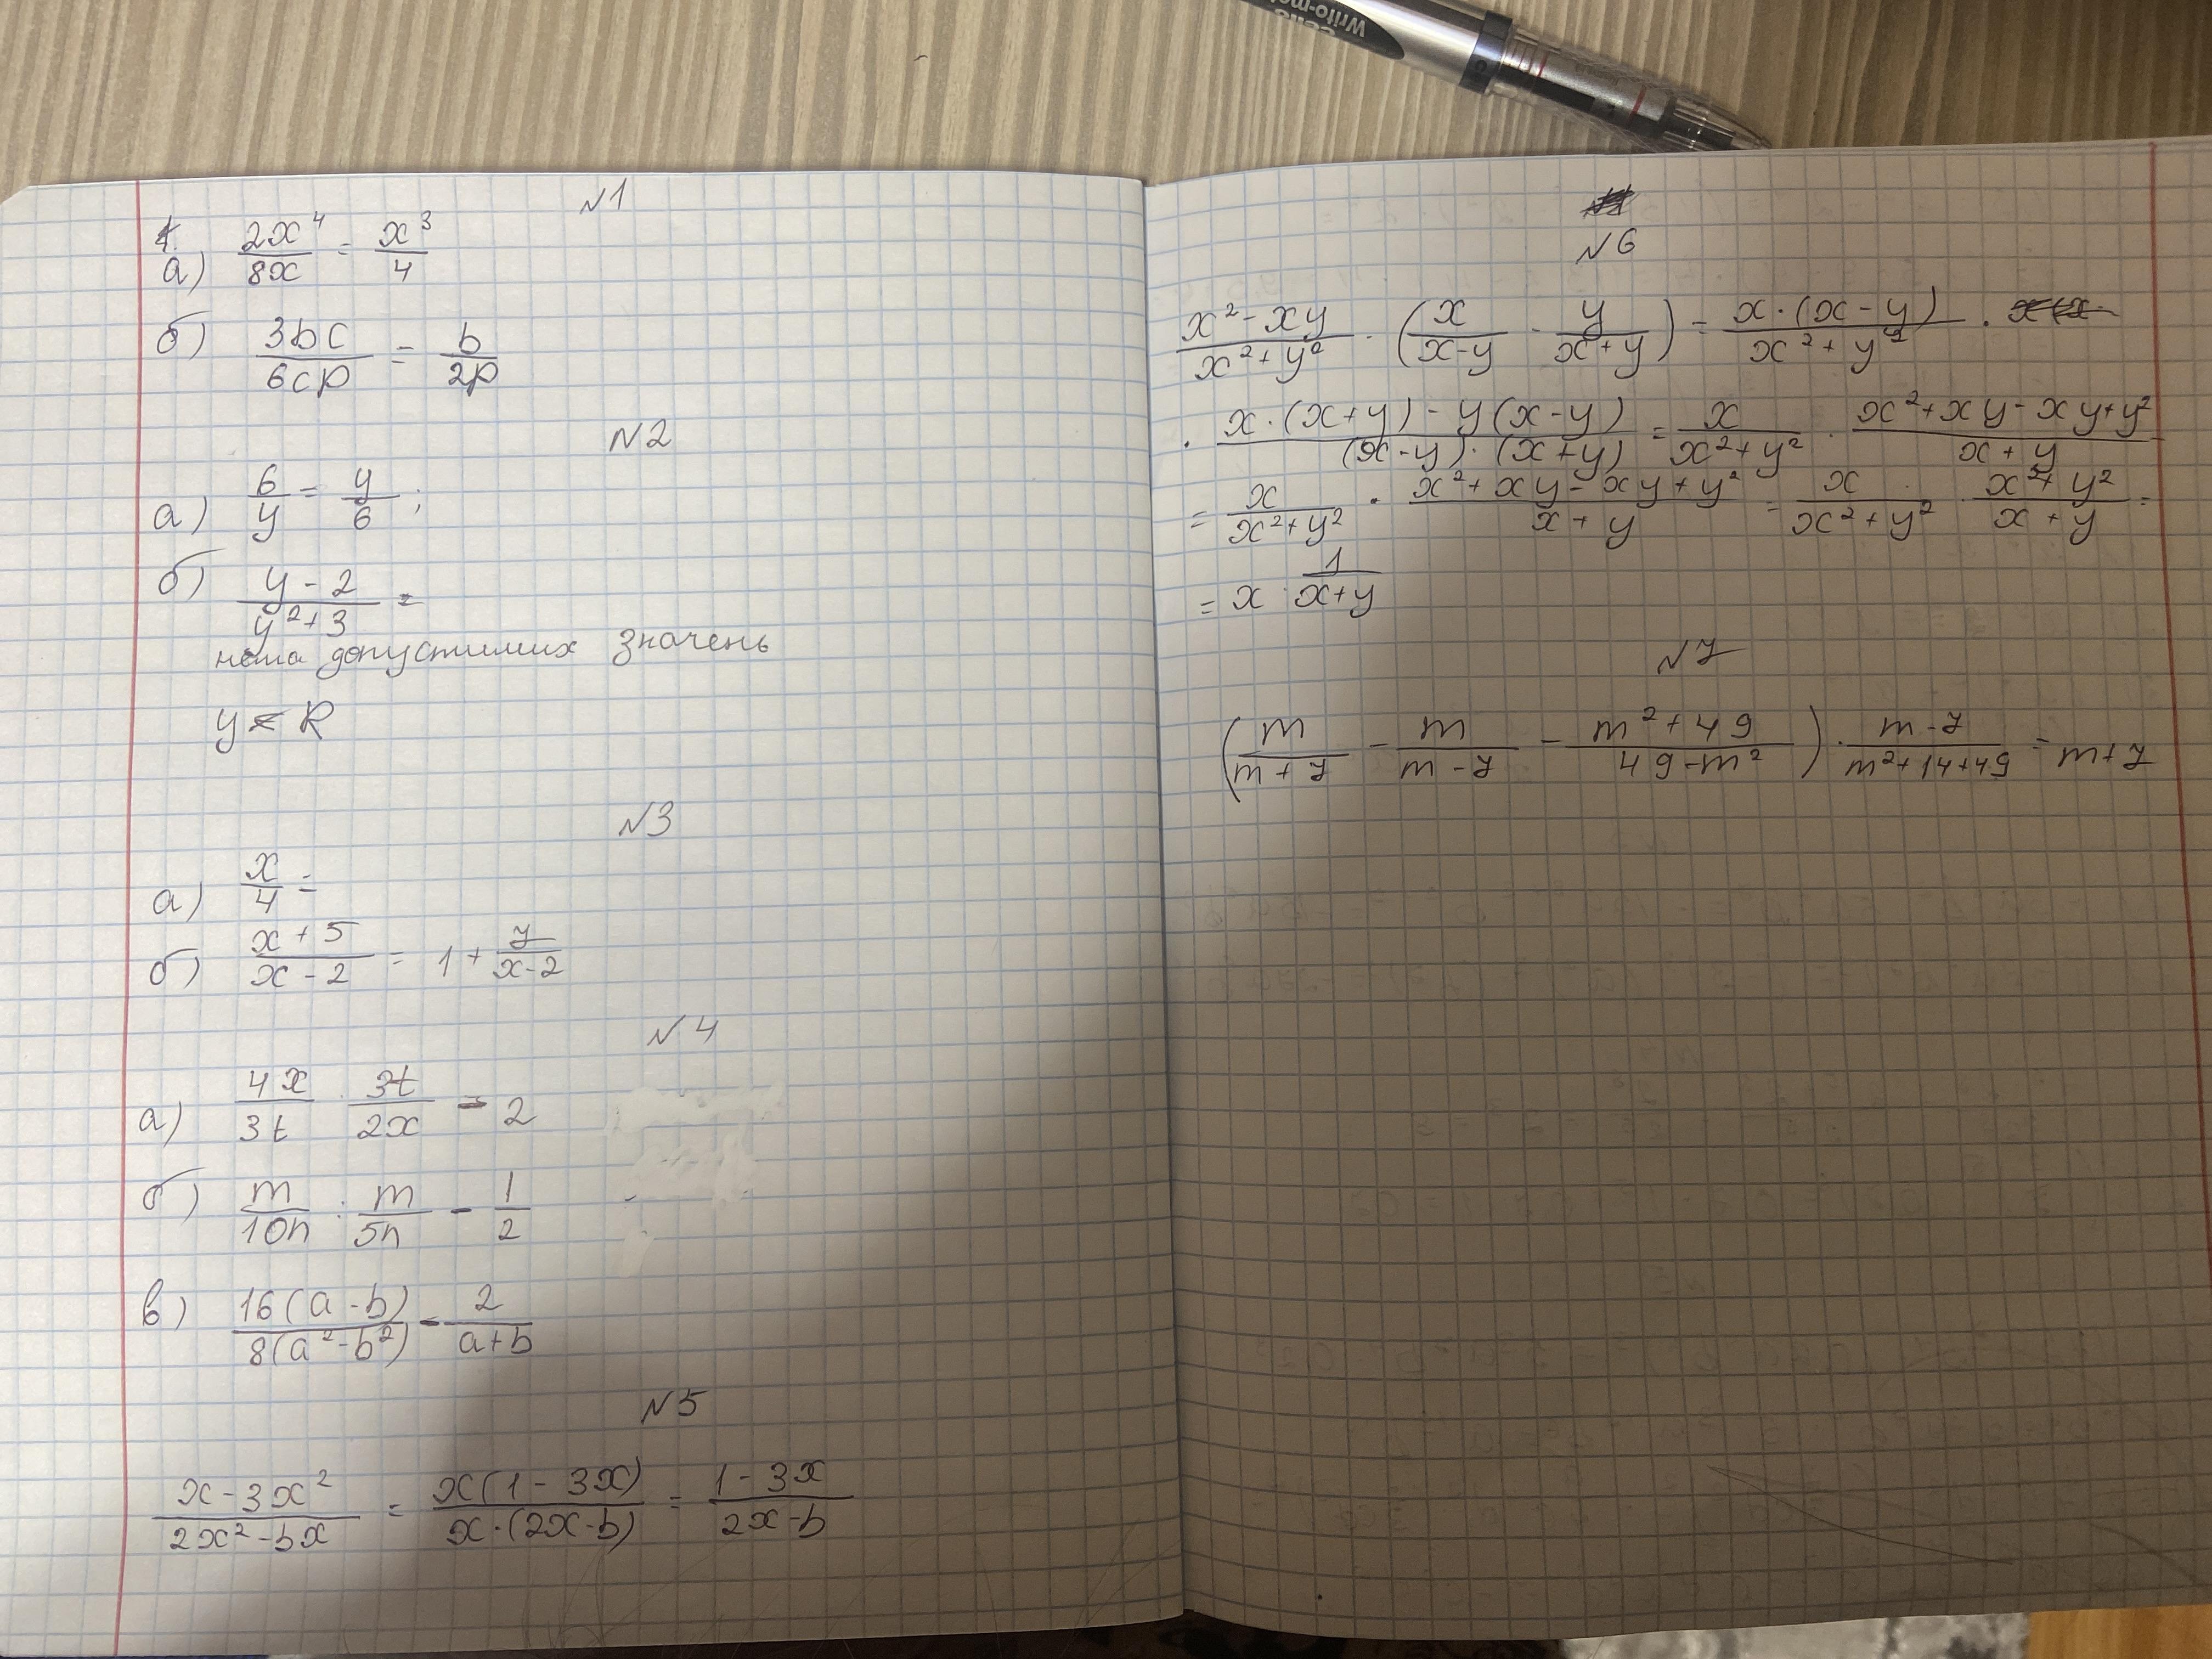 №1
1.
а) 2x⁴/8x = x³/4
б) 3bc/6cp = b/2p
№2
а) 6/y = y/6 ;
б) y-2/y²+3 =
нема допустимих значень
y ∈ R
№3
а) x/4 =
б) x+5/x-2 = 1 + 7/x-2
№4
а) 4x/3t · 3t/2x = 2
б) m/10n : m/5n = 1/2
в) 16(a-b)/8(a²-b²) = 2/a+b
№5
x-3x²/2x²-bx = x(1-3x)/x·(2x-b) = 1-3x/2x-b
№6
x²-xy/x²+y² · (x/x-y - y/x+y) = x·(x-y)/x²+y² ·
· x·(x+y)-y(x-y)/(x-y)·(x+y) = x/x²+y² · x²+xy-xy+y²/x+y
= x/x²+y² · x²+xy-xy+y²/x+y = x/x²+y² · x²+y²/x+y =
= x · 1/x+y
№7
(m/m+7 - m/m-7 - m²+49/49-m²) · m-7/m²+14+49 = m+7